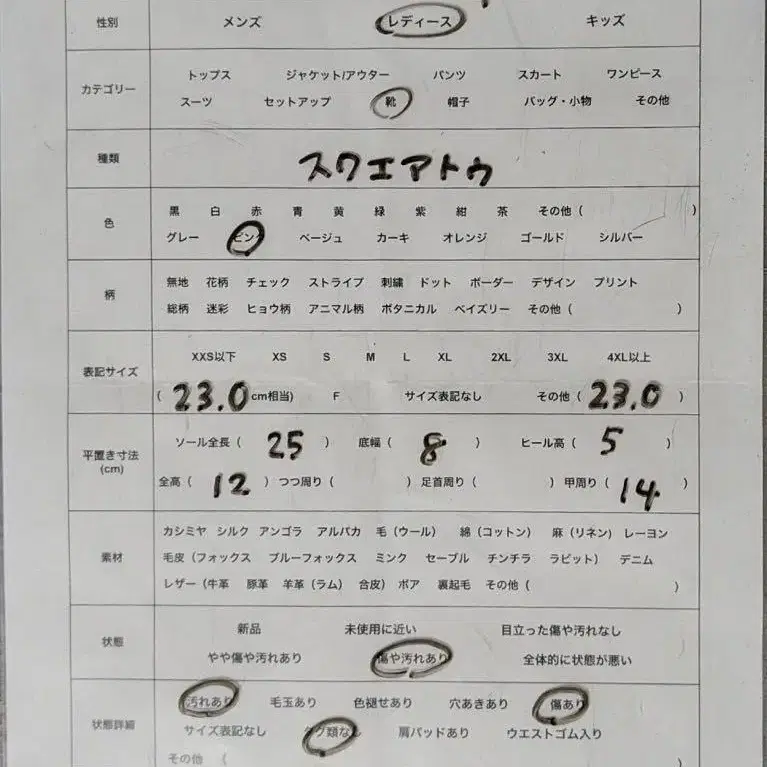 性別 メンズ レディース キッズ
カテゴリー
トップス ジャケット/アウター パンツ スカート ワンピース
スーツ セットアップ 靴 帽子 バッグ・小物 その他
種類 スクエアトゥ
色
黒 白 赤 青 黄 緑 紫 紺 茶 その他 ( )
グレー ピンク ベージュ カーキ オレンジ ゴールド シルバー
柄
無地 花柄 チェック ストライプ 刺繍 ドット ボーダー デザイン プリント
総柄 迷彩 ヒョウ柄 アニマル柄 ボタニカル ペイズリー その他 ( )
表記サイズ
XXS以下 XS S M L XL 2XL 3XL 4XL以上
( 23.0 cm相当) F サイズ表記なし その他 ( 23.0 )
平置き寸法
(cm)
ソール全長 ( 25 ) 底幅 ( 8 ) ヒール高 ( 5 )
全高 ( 12 ) つつ周り ( ) 足首周り ( ) 甲周り ( 14 )
素材
カシミヤ シルク アンゴラ アルパカ 毛 (ウール) 綿 (コットン) 麻 (リネン) レーヨン
毛皮 (フォックス ブルーフォックス ミンク セーブル チンチラ ラビット) デニム
レザー (牛革 豚革 羊革 (ラム) 合皮) ボア 裏起毛 その他 ( )
状態
新品 未使用に近い 目立った傷や汚れなし
やや傷や汚れあり 傷や汚れあり 全体的に状態が悪い
状態詳細
汚れあり 毛玉あり 色褪せあり 穴あきあり 傷あり
サイズ表記なし タグ類なし 肩パッドあり ウエストゴム入り
その他 ( )